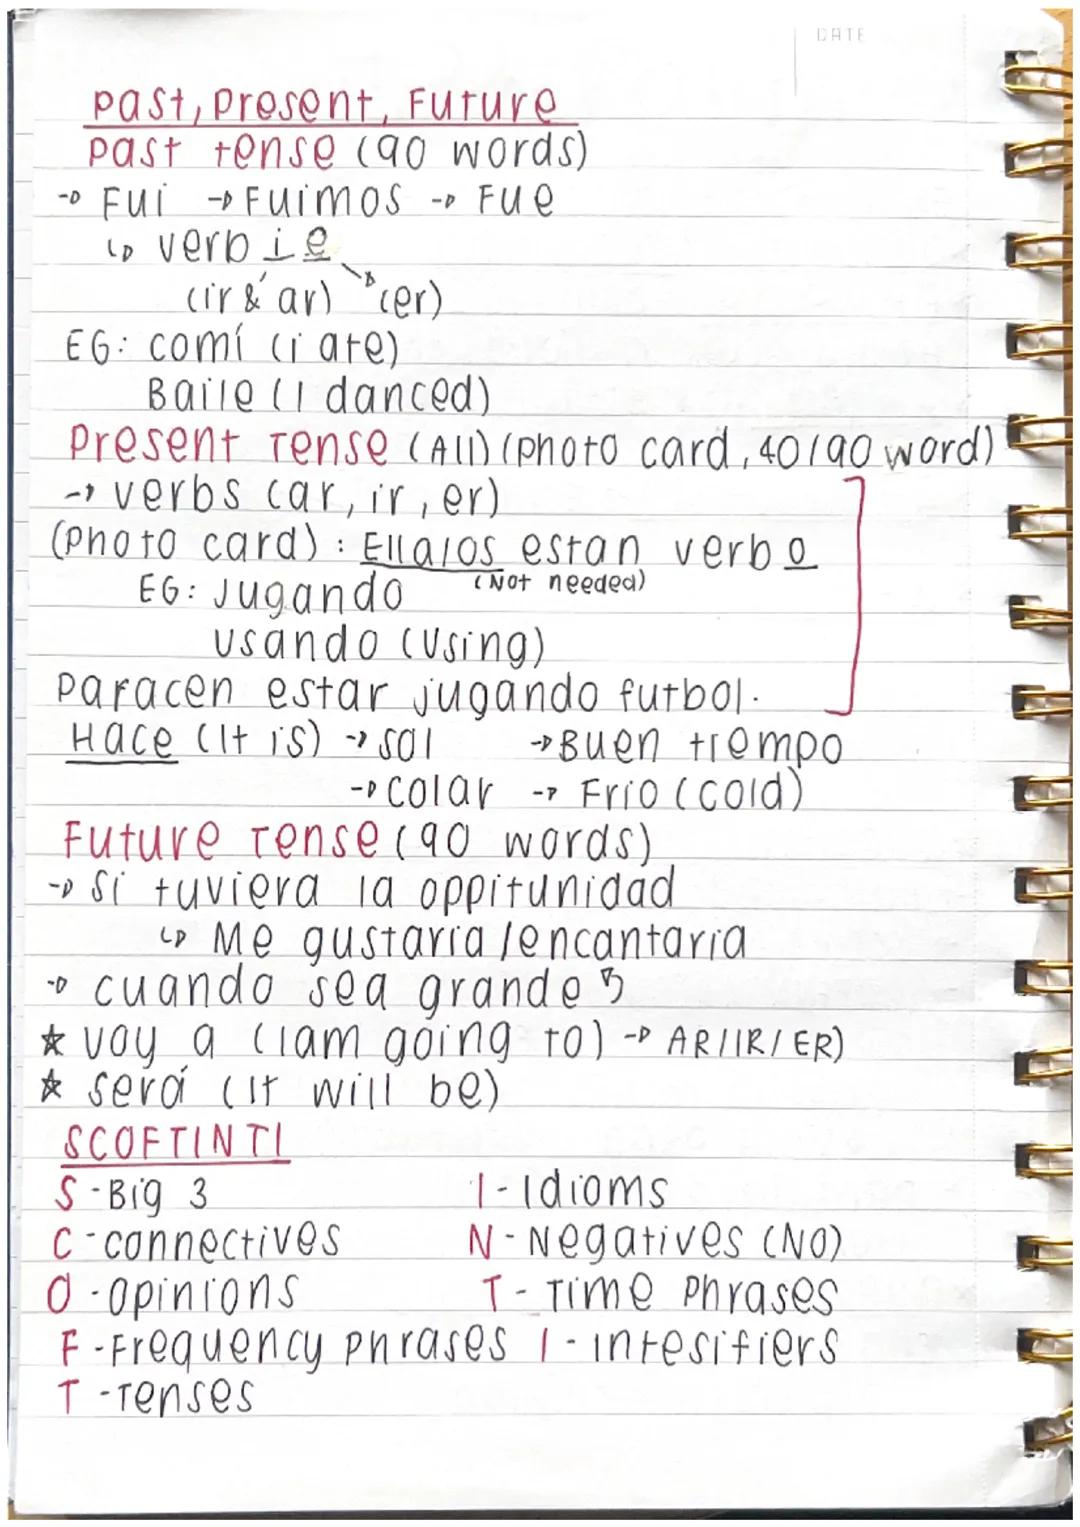 DATE
Past, Present, Future
Past tense (90 words)
→ Fui → Fuimos → Fue
↳ verb i e
(ir & ar) (er)
EG: comí (i ate)
Baile (I danced)
Present Tense (All) (photo card, 40/90 word)
→ verbs (ar, ir, er)
(Photo card): Ella/os estan verb o
(Not needed)
EG: Jugando
usando (using)
Paracen estar jugando futbol.
Hace (It is) → sol → Buen tiempo
→ colar → Frio (cold)
Future Tense (90 words)
→ Si tuviera la oppitunidad
↳ Me gustaria/encantaria
→ cuando sea grande
★ voy a (I am going to) → AR/IR/ER)
★ será (It will be)
SCOFTINTI
S - Big 3 I - Idioms
C - connectives N - Negatives (NO)
O - Opinions T - Time Phrases
F - Frequency Phrases I - intesifiers
T - Tenses